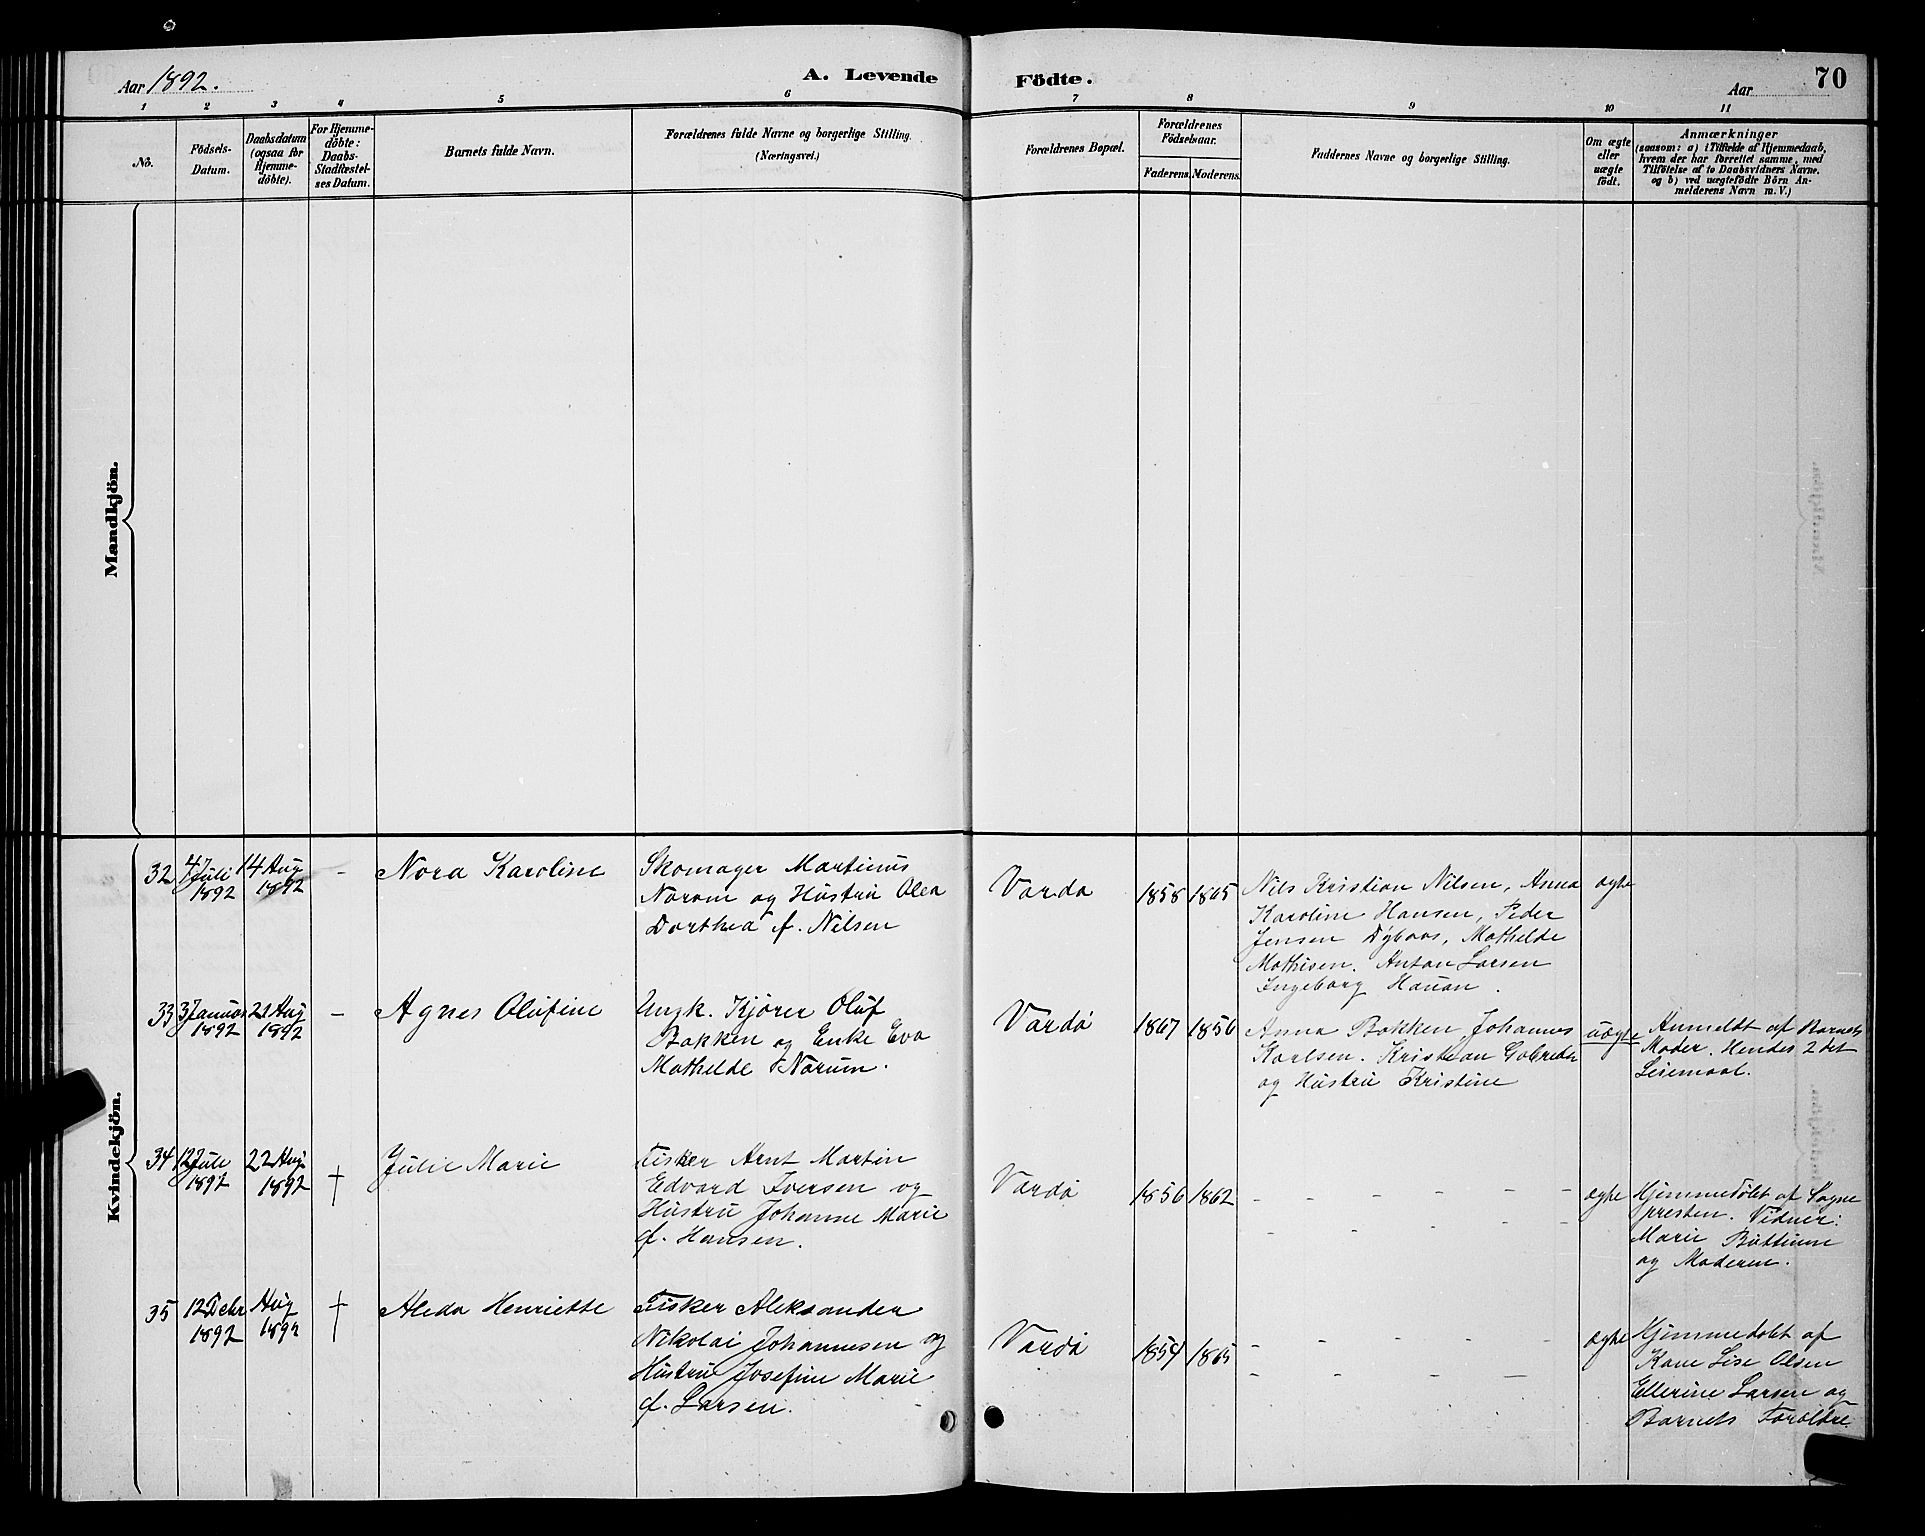 Aar 1892.
A. Levende Födte.
Aar
70
1 2 3 4 5 6 7 8 9 10 11
No.
Födsels-
Datum.
Daabsdatum
(ogsaa for
Hjemme-
döbte).
For Hjemme-
döbte:
Daabs-
Stadfæstel-
ses Datum.
Barnets fulde Navn.
Forældrenes fulde Navne og borgerlige Stilling.
(Næringsvei.)
Forældrenes Bopæl.
Forældrenes
Födselsaar.
Faderens. Moderens.
Faddernes Navne og borgerlige Stilling.
Om ægte
eller
uægte
födt.
Anmærkninger
(saasom: a) i Tilfælde af Hjemmedaab,
hvem der har forrettet samme, med
Tilföielse af to Daabsvidners Navne,
og b) ved uægtefödte Börn An-
melderens Navn m. V.)
Mandkjön.
Kvindekjön.
32
4 Juli
1892
14 Aug
1892
-
Nora Karoline
Skomager Martinus
Norum og Hustru Olea
Dorthea f. Nilsen
Vardo
1858
1865
Nils Kristian Nilsen, Anna
Karoline Hansen, Peder
Jensen Dybaas, Mathilde
Mathisen. Anton Larsen
Ingeborg Hauan.
ægte
33
3 Januar
1892
21 Aug
1892
-
Agnes Olufine
Ungk. Kjører Oluf
Bakken og Enke Eva
Mathilde Norum.
Vardø
1867
1856
Anna Bakken, Johannes
Karlsen. Kristian
og Hustru Kristine
uægte
Anmeldt af Barnets
Moder. Hendes 2det
Leiemaal.
34
12 Juli
1892
22 Aug
1892
†
Julie Marie
Fisker Arnt Martin
Edvard Iversen og
Hustru Johanne Marie
f. Hansen.
Vardø
1856
1862
- - - - - -
- - - -
ægte
Hjemmedøbt af Sogne
presten. Vidner:
Marie
og Moderen.
35
12 Febr
1892
Aug
1892
†
Aleda Henriette
Fisker Aleksander
Nikolai Johannesen og
Hustru Josefine Marie
f. Larsen.
Vardø
1854
1865
- - - - -
- - - - -
ægte
Hjemmedøbt af
Kone Lise Olsen
Ellerine Larsen og
Barnets Foreldre.